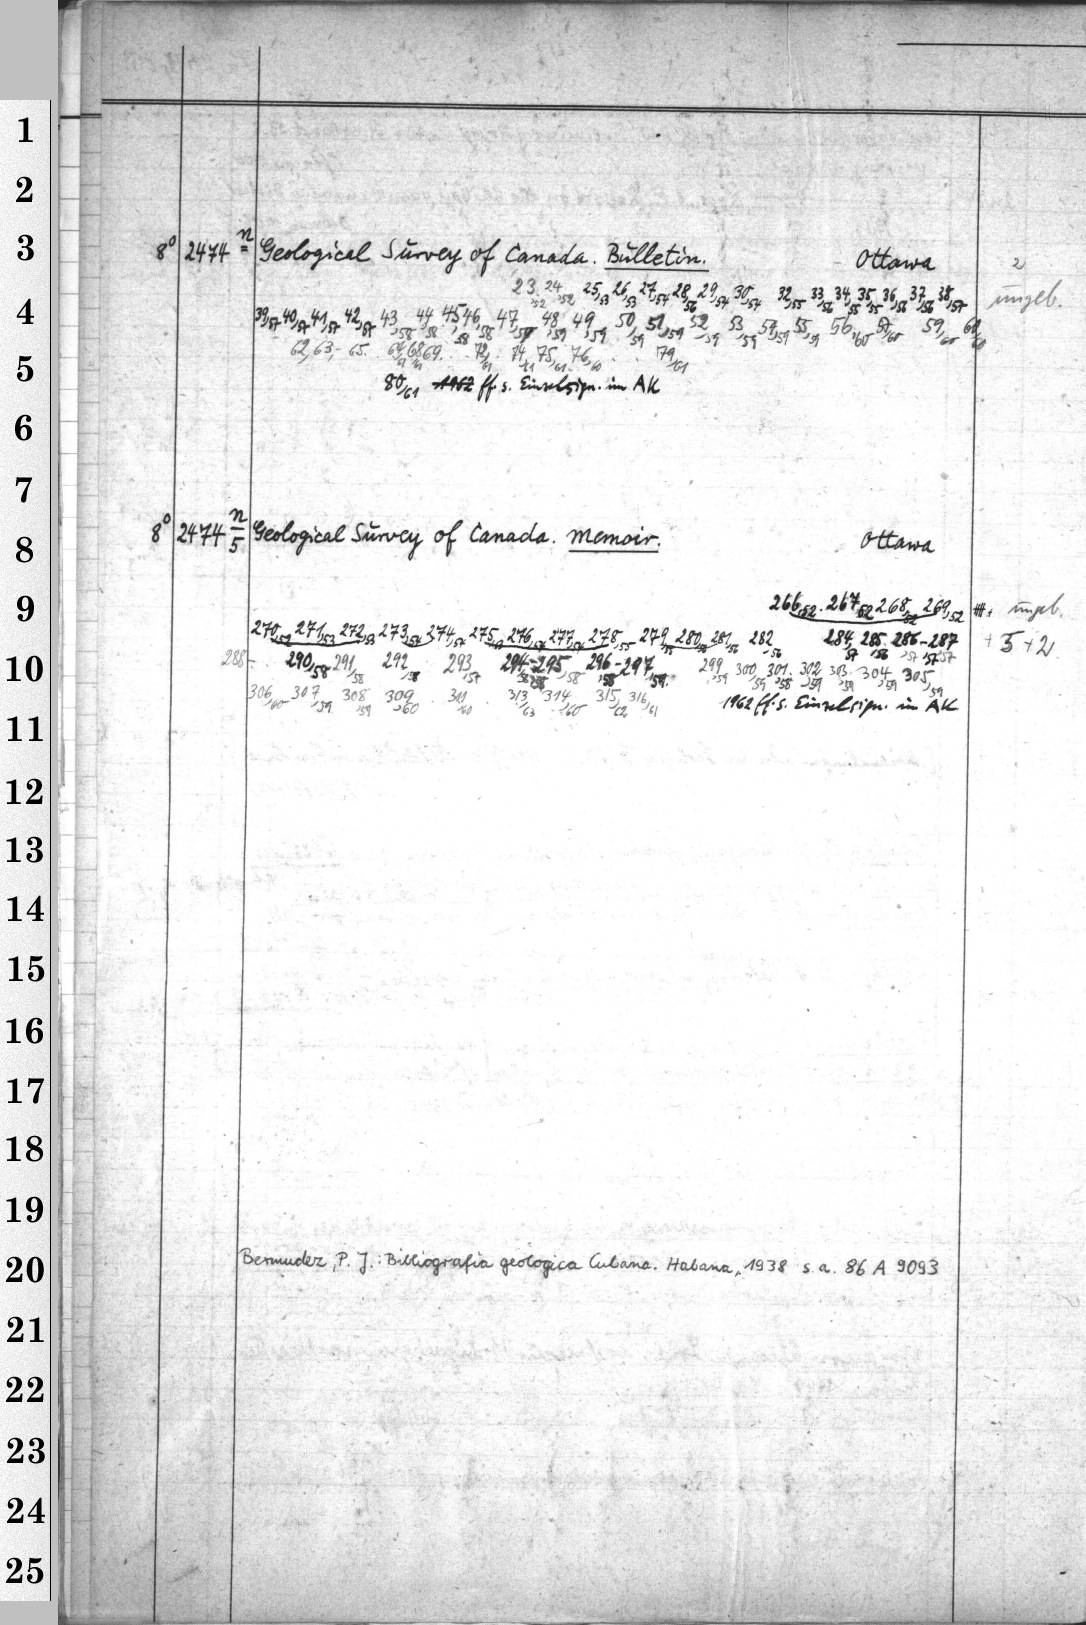 8° 2474 n Geological Survey of Canada. Bulletin. Ottawa 2
23,52 24,52 25,53 26,53 27,54 28,56 29,54 30,54 32,55 33,56 34,55 35,55 36,56 37,56 38,57 ungeb.
39,57 40,57 41,57 42,57 43,58 44,58 45,58 46,58 47,59 48,59 49,59 50,59 51,59 52,59 53,59 54,59 55,59 56,60 57,60 59,60 60,60
62, 63, - 65. 67,61 68,61 69. 72,61 74,61 75,61 76,60 79,61
80,61 1962 ff. s. Einzelsign. im AK
8° 2474 n/5 Geological Survey of Canada. Memoir. Ottawa
266,52. 267,52 268,52 269,52 ungeb.
270,52 271,53 272,53 273,54 274,54 275, 276,54 277,54 278,55 279,55 280, 281,56 282,56 284,57 285,56 286,57-287,57 + 5 + 2
288- 290,58 291,58 292,58 293,57 294,58-295,58 296,58-297,59. 299,59 300,59 301,58 302,59 303,59 304,59 305,59
306,60 307,59 308,59 309,60 311,60 313,63 314,60 315,62 316,61 1962 ff. s. Einzelsign. im AK
Bermudez, P. J.: Bibliografia geologica Cubana. Habana, 1938 s. a. 86 A 9093
1
2
3
4
5
6
7
8
9
10
11
12
13
14
15
16
17
18
19
20
21
22
23
24
25